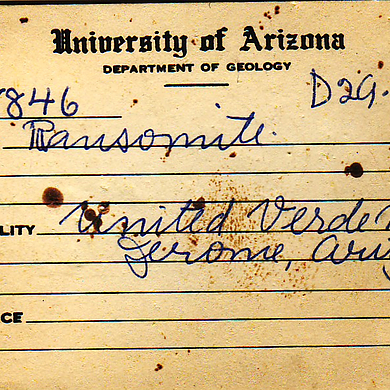 University of Arizona
DEPARTMENT OF GEOLOGY
846 D29.
Ransomite.
LITY United Verde
Jerome, Ariz
CE